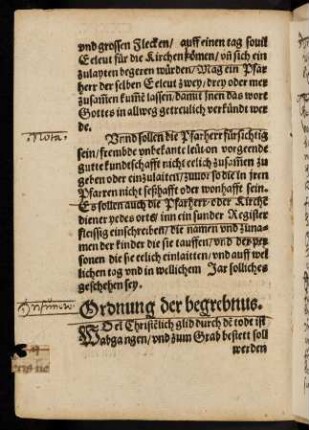 vnd grossen Flecken/ auff einen tag souil
Eeleut für die Kirchen kömen/ vñ sich ein
zulayten begeren würden/ Mag ein Pfar
herr der selben Eeleut zwey/ drey oder mer
zusamen kumē lassen/ damit jnen das wort
Gottes in allweg getreulich verkündt wer
de.
Nota.
Vnnd sollen die Pfarherr fürsichtig
sein/ frembde vnbekante leüt on vorgeende
gutte kundtschafft nicht eelich zusamen zu
geben oder einzulaiten/ zuuor so die in jren
Pfarren nicht seßhafft oder wonhafft sein.
Es sollen auch die Pfarherr/ oder Kirchē
diener yedes orts/ inn ein sunder Register
fleissig einschreiben/ die namen vnd zuna-
men der kinder die sie tauffen/ vnd der per
sonen die sie eelich einlaitten/ vnd auff wel
lichen tag vnd in wellichem Jar solliches
geschehen sey.
Ordnung der begrebnus.
So ei Christēlich glid durch dē todt ist
abgangen/ vnd zum Grab bestett soll
werden